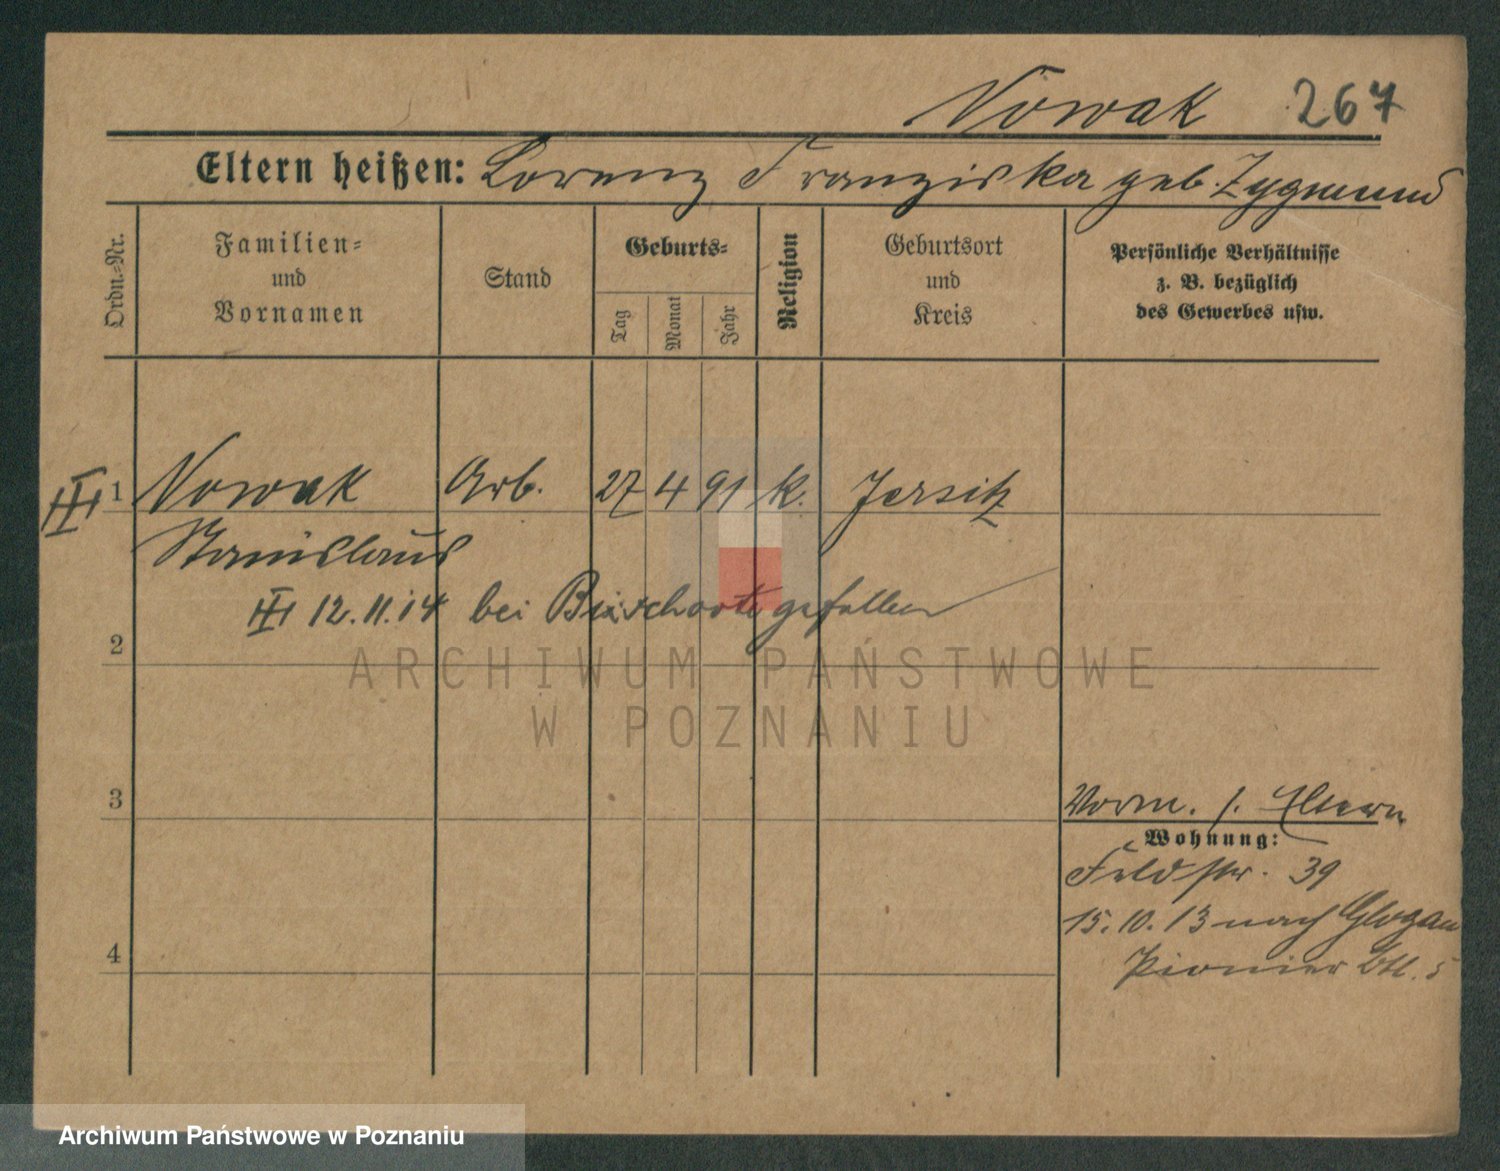 Nowak 267
Eltern heißen: Lorenz Franziska geb. Zygmund
Ordn.-Nr.
Familien-
und
Vornamen
Stand
Geburts-
Tag
Monat
Jahr
Religion
Geburtsort
und
Kreis
Persönliche Verhältnisse
z. B. bezüglich
des Gewerbes usw.
1 Nowak Arb. 27 4 91 k. Jersitz
Stanislaus
12.11.14 bei Bixschoote gefallen
2
ARCHIWUM PAŃSTWOWE
W POZNANIU
3
Vorm. s. Eltern
Wohnung:
Feldstr. 39
15.10.13 nach Glogau
4
Pionier Btl. 5
Archiwum Państwowe w Poznaniu